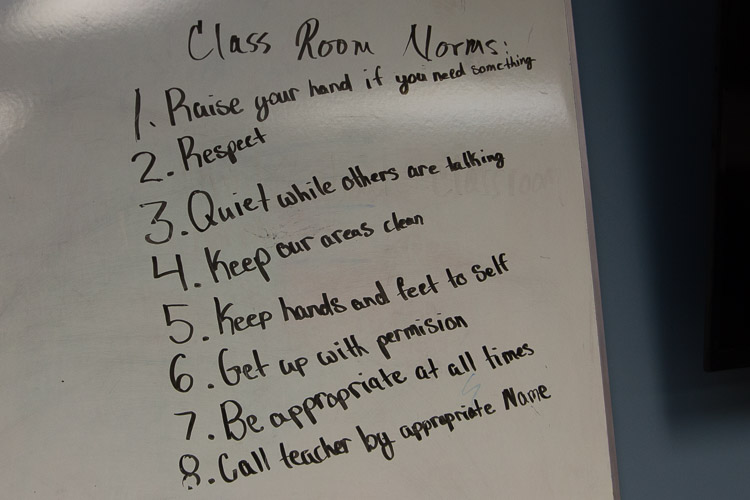 Class Room Norms:
1. Raise your hand if you need something
2. Respect
3. Quiet while others are talking
4. Keep our areas clean
5. Keep hands and feet to self
6. Get up with permision
7. Be appropriate at all times
8. Call teacher by appropriate Name